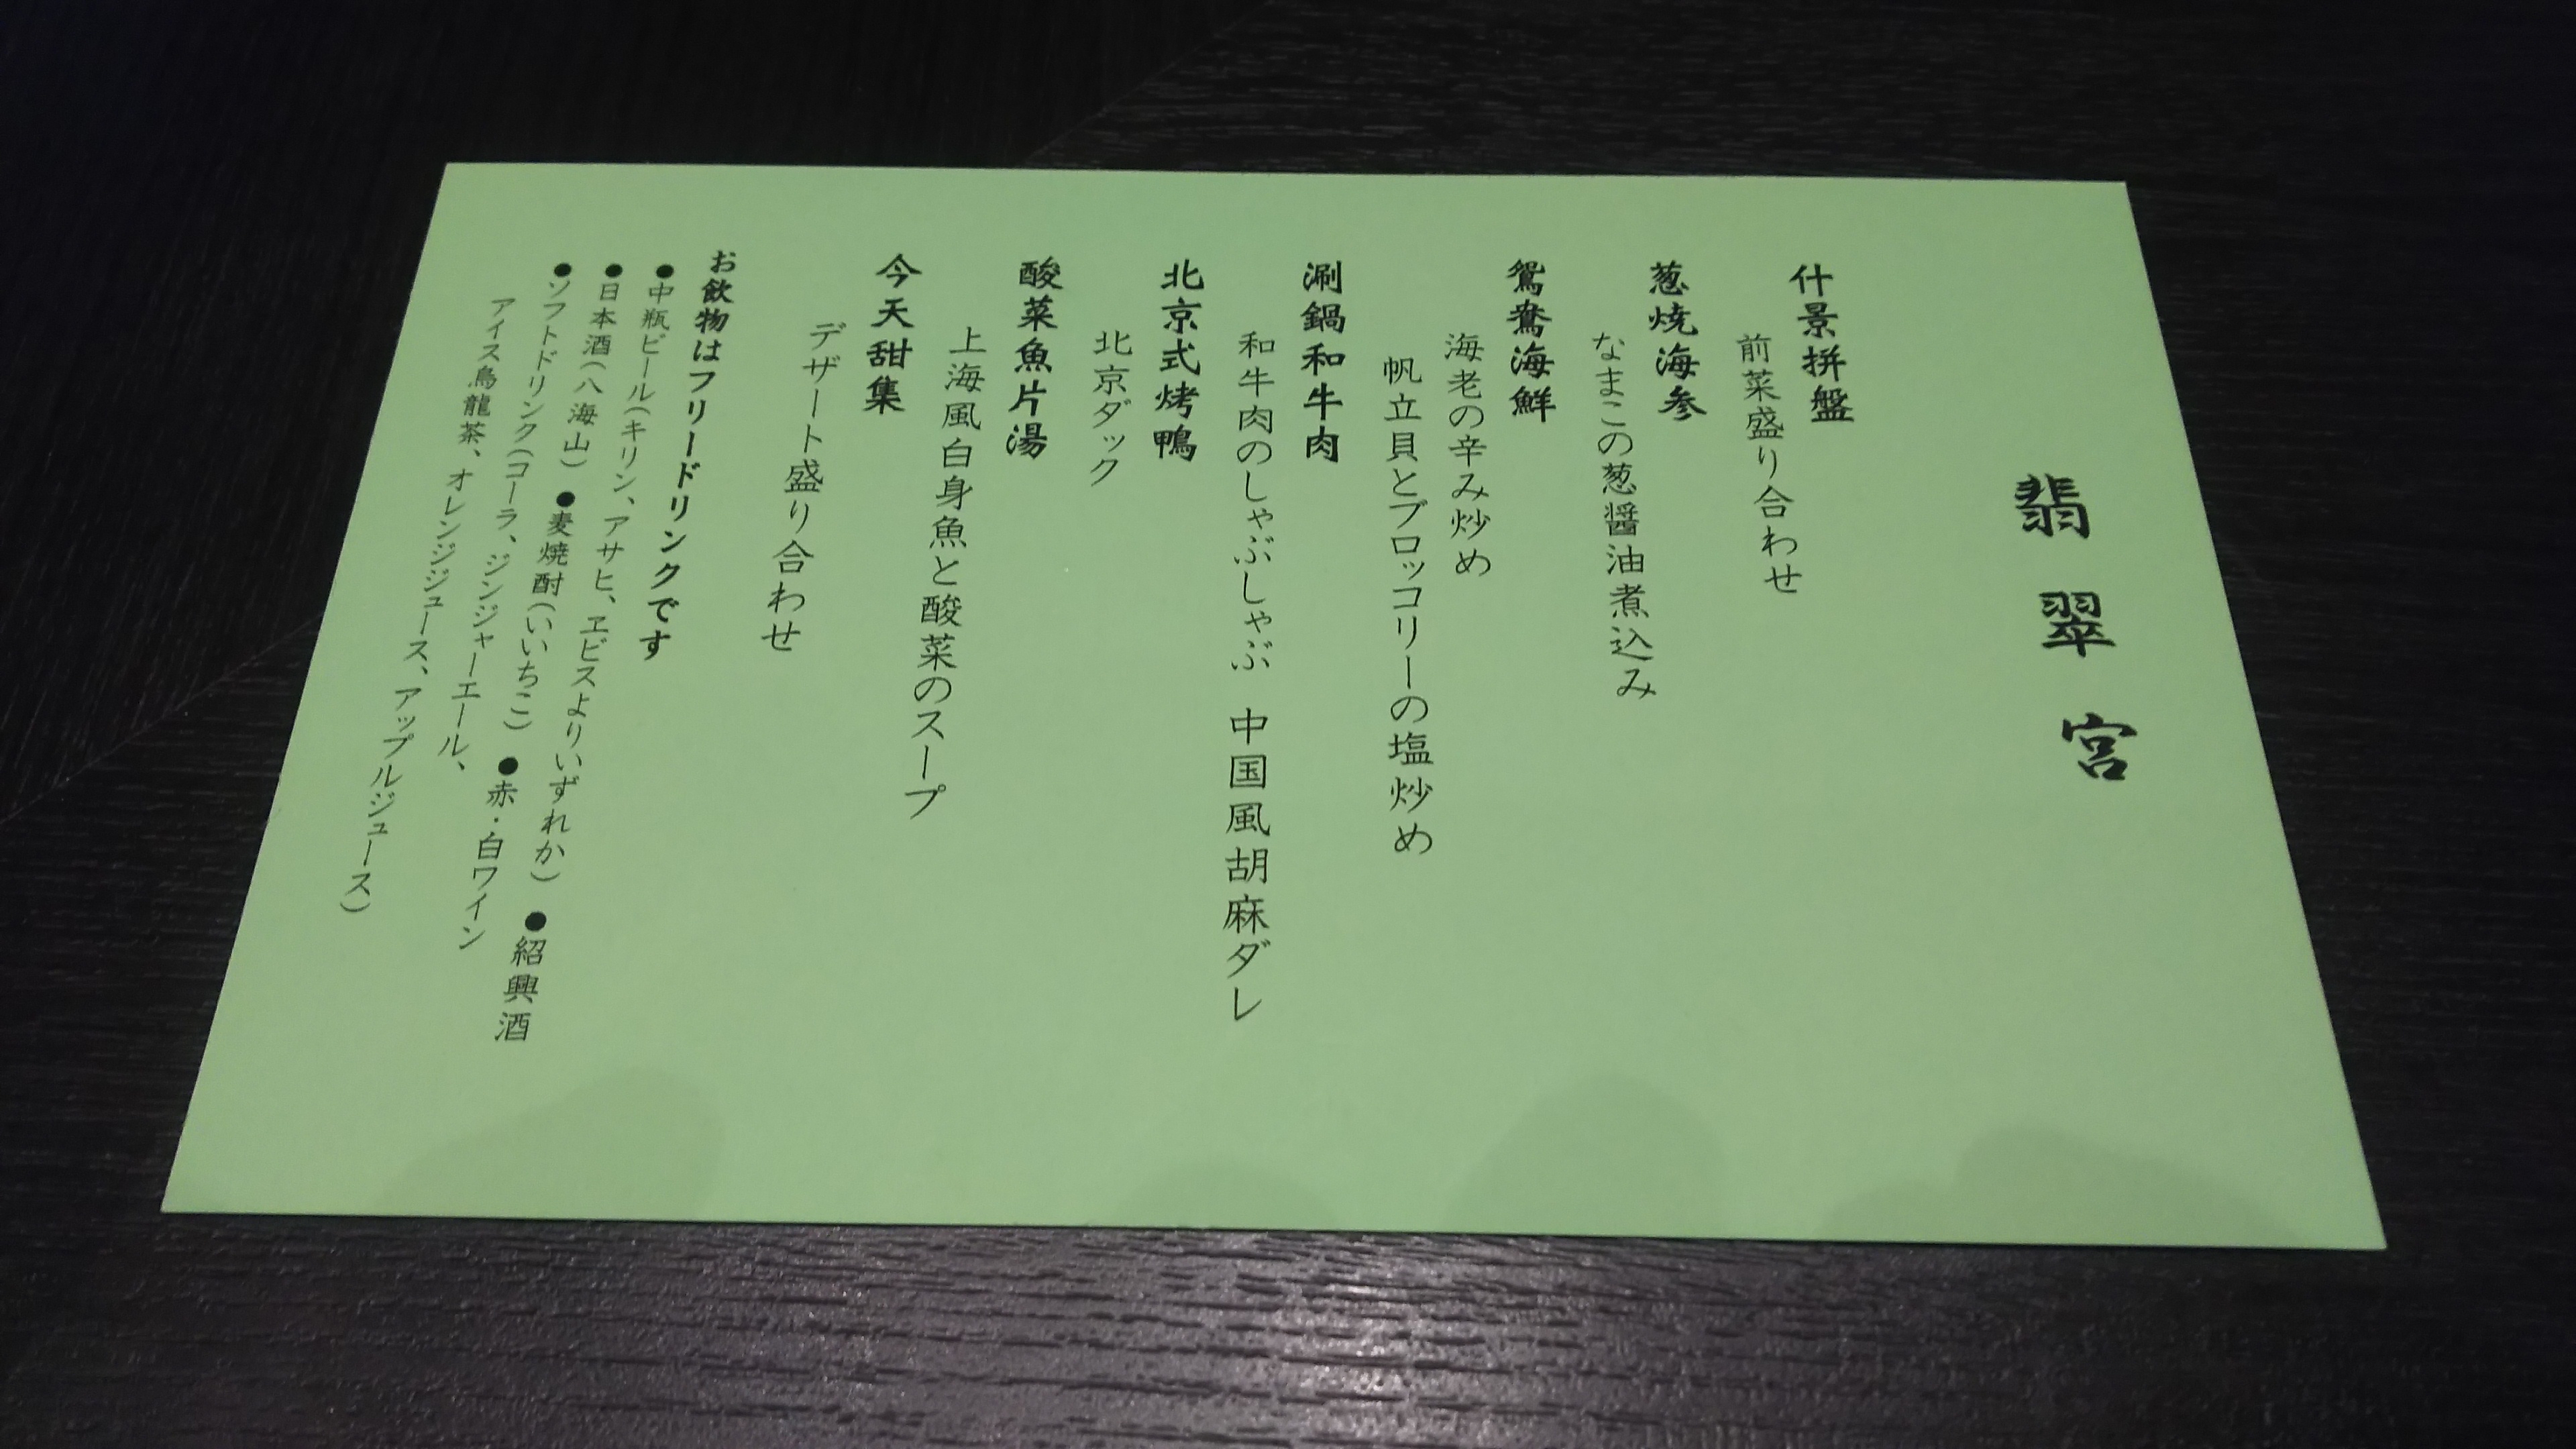 翡翠宮
什景拼盤
前菜盛り合わせ
葱焼海参
なまこの葱醤油煮込み
鴛鴦海鮮
海老の辛み炒め
帆立貝とブロッコリーの塩炒め
涮鍋和牛肉
和牛肉のしゃぶしゃぶ 中国風胡麻ダレ
北京式烤鴨
北京ダック
酸菜魚片湯
上海風白身魚と酸菜のスープ
今天甜集
デザート盛り合わせ
お飲物はフリードリンクです
●中瓶ビール（キリン、アサヒ、ヱビスよりいずれか） ●紹興酒
●日本酒（八海山） ●麦焼酎（いいちこ） ●赤・白ワイン
●ソフトドリンク（コーラ、ジンジャーエール、
アイス烏龍茶、オレンジジュース、アップルジュース）